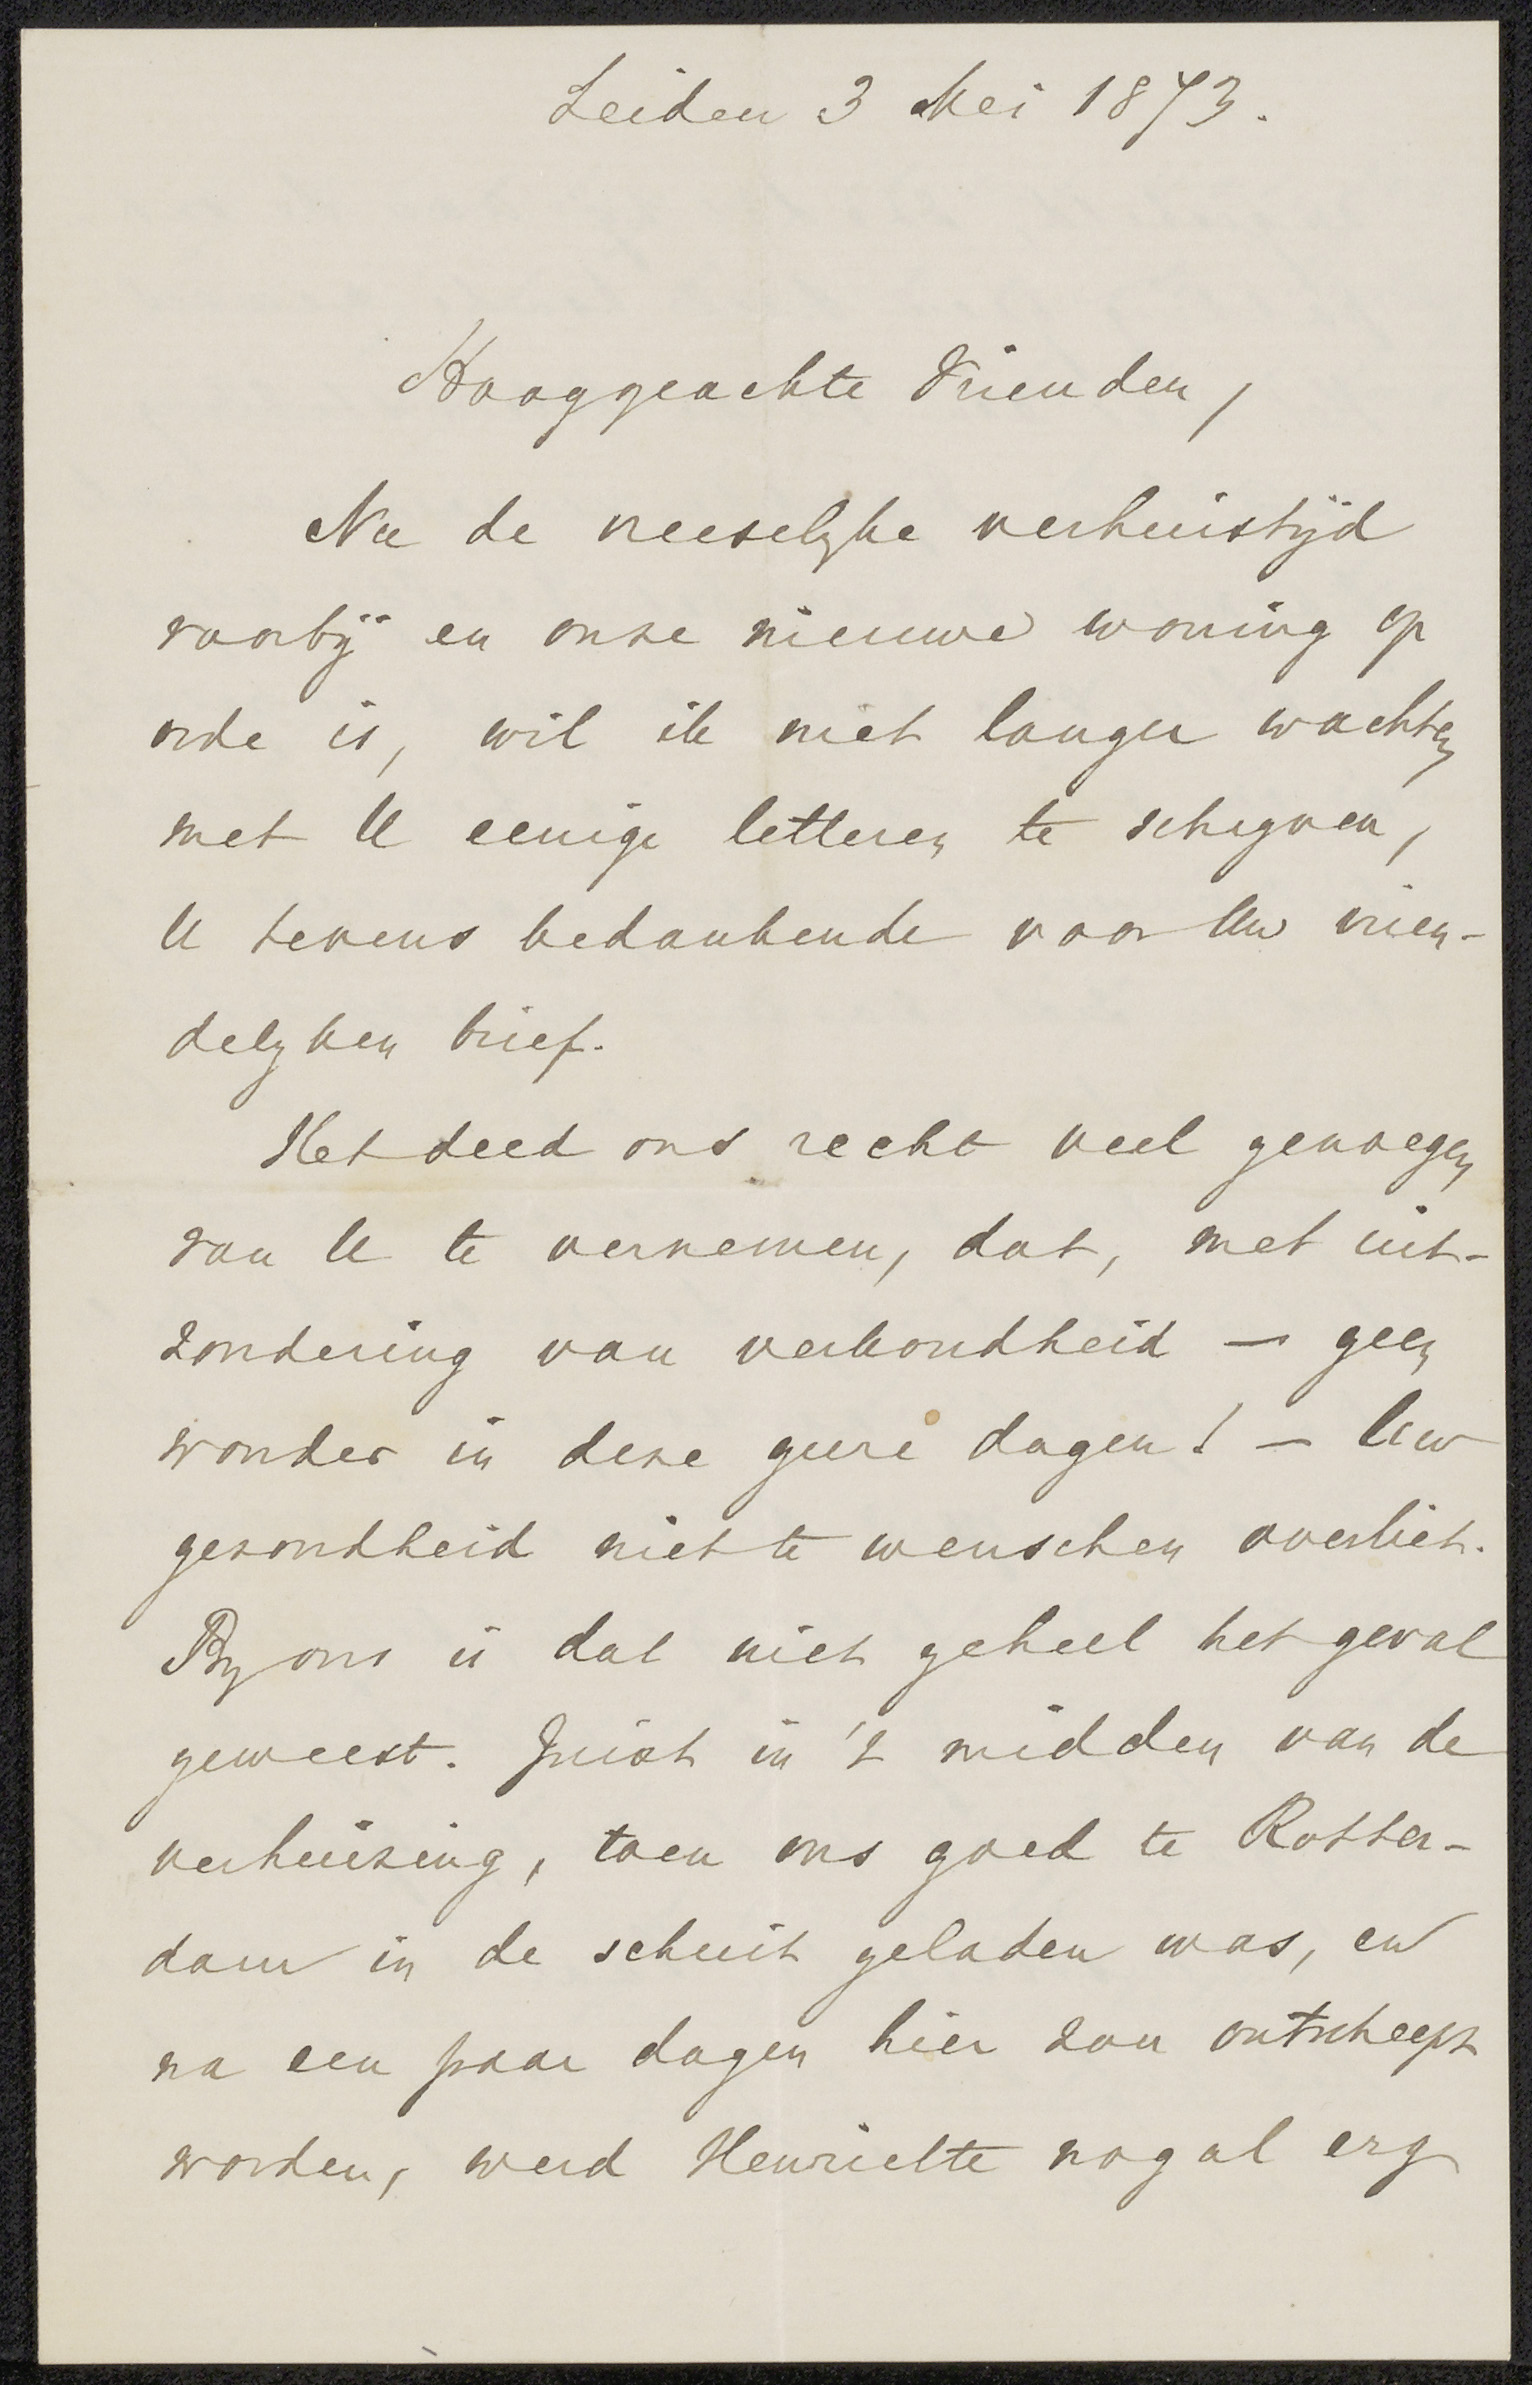 Leiden 3 Mei 1873.
Hooggeachte Vrienden,
Nu de vreeselyke verhuistijd
voorbij en onze nieuwe woning op
orde is, wil ik niet langer wachten
met U eenige letteren te schryven,
U tevens bedankende voor Uw vrien-
delyken brief.
Het deed ons recht veel genoegen
van U te vernemen, dat, met uit-
zondering van verkoudheid — geen
wonder in deze gure dagen! — Uw
gezondheid niet te wenschen overliet.
By ons is dat niet geheel het geval
geweest. Juist in 't midden van de
verhuizing, toen ons goed te Rotter-
dam in de schuit geladen was, en
na een paar dagen hier zou ontscheept
worden, werd Henriette nog al erg